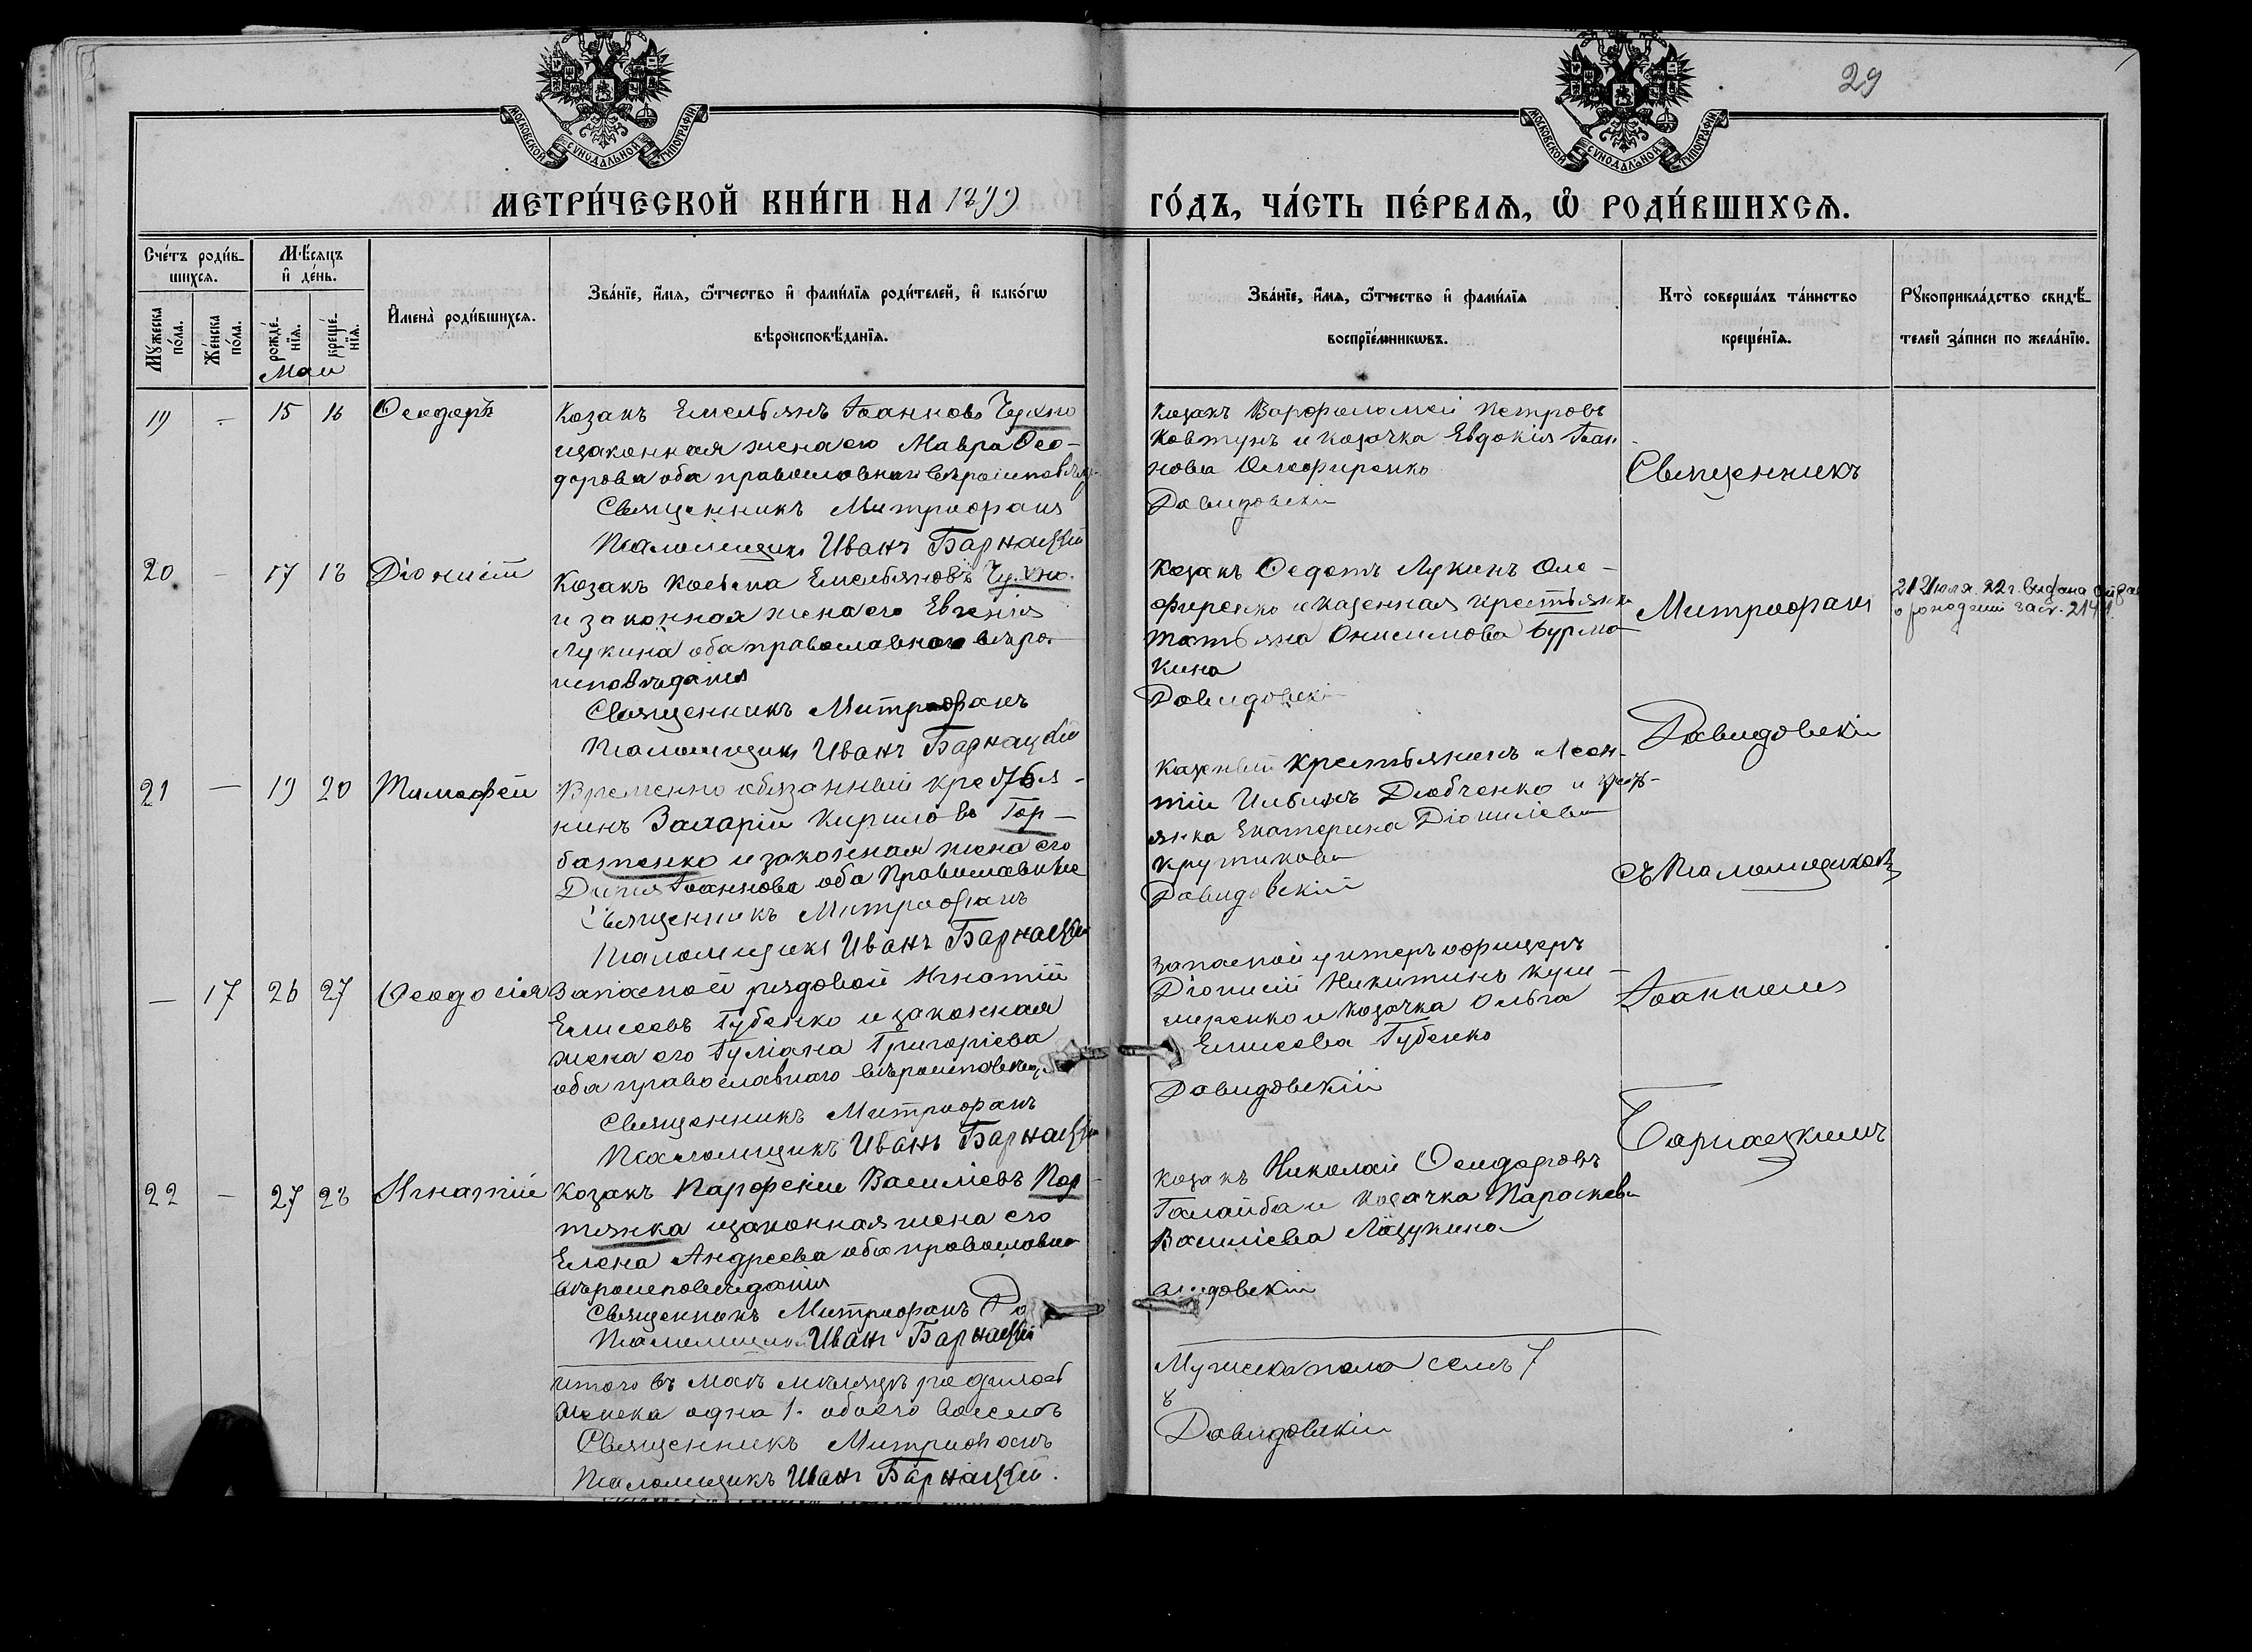 29
МОСКОВСКОЙ СУНОДАЛЬНОЙ ТИПОГРАФІИ
МОСКОВСКОЙ СУНОДАЛЬНОЙ ТИПОГРАФІИ
МЕТРИ́ЧЕСКОЙ КНИ́ГИ НА 1899
ГО́ДЪ, ЧА́СТЬ ПЕ́РВАѦ, Ѽ РОДИ́ВШИХСѦ.
Сче́тъ роди́в-
шихся.
Мѣ́сяцъ
и҆ де́нь.
Мужеска по́ла.
Же́нска по́ла.
рожде́-нїѧ.
креще́-нїѧ.
И҆мена̀ роди́вшихся.
Зва́нїе, и҆́мѧ, ѻ҆́тчество и҆ фами́лїѧ роди́телей, и҆ како́гѡ
вѣроисповѣ́данїѧ.
Зва́нїе, и҆́мѧ, ѻ҆́тчество и҆ фами́лїѧ
воспрїе́мникѡвъ.
Кто̀ соверша́лъ та́инство
креще́нїѧ.
Рꙋкоприкла́дство свидѣ́-
телей за́писи по жела́нїю.
Маи
19 - 15 16 Ѳеодоръ
Козакъ Емельянъ Іоанновъ Чухно
изаконная жена его Мавра Ѳео-
дорова оба православнаго вѣроисповѣд.
Священникъ Митрофанъ
Псаломщикъ Иванъ Барнацкій
Козакъ Варфоломей Петровъ
Ковтунъ и козачка Евдокія Іоан-
нова Олефиренко
Давидовскій
20 - 17 18 Діонисій
Козакъ Косьма Емельяновъ Чухно.
и законная жена его Евгенія
Лукина оба православнаго вѣро-
исповѣданія
Священникъ Митрофанъ
Псаломщикъ Иванъ Барнацкій
Козакъ Ѳедотъ Лукинъ Оле-
фиренко и казенная крестьянка
Татьяна Онисимова Бурма-
кина
Давидовскій
21 Июля 22 г. выдана
о рождении за №. 214
21 — 19 20 Тимофей
Временно обязанный кресть-
нинъ Захарій Кириловъ Гор-
батенко и законная жена его
Іоаннова оба Православные
Священникъ Митрофанъ
Псаломщикъ Иванъ Барнацкій
Казеный крестьянинъ Леон-
тій Дюбченко и крест-
янка Екатерина Діонисіева
Крутикова
Давидовскій
— 17 26 27 Ѳеодосія
Запасной рядовой Игнатій
Елисеевъ Губенко и законная
жена его Гуліана Григоріева
оба православнаго вѣроисповѣд.
Священникъ Митрофанъ
Псаломщикъ Иванъ Барнацкій
Запасной унтеръ офицеръ
Діонисій Никитинъ Куш-
ниренко и козачка Ольга
Елисеева Губенко
Давидовскій
22 — 27 28 Игнатій
Козакъ Парфеній Василіевъ Пор-
тянка изаконная жена его
Елена Андреева оба православнаго
вѣроисповѣданія
Священникъ Митрофанъ Да
Псаломщикъ Иванъ Барнацкій
Козакъ Николай Ѳеодоровъ
Галайба и козачка Параскева
Василіева Лазукина
видовскій
Священникъ
Митрофанъ
Давидовскій
съ Псаломщикомъ
Іоанномъ
Барнацкимъ
итого въ маѣ мѣсяцѣ родилось
Мужеска пола семь 7
женска одна 1. обоего восемь
8
Священникъ Митрофанъ
Давидовскій
Псаломщикъ Иванъ Барнацкій.